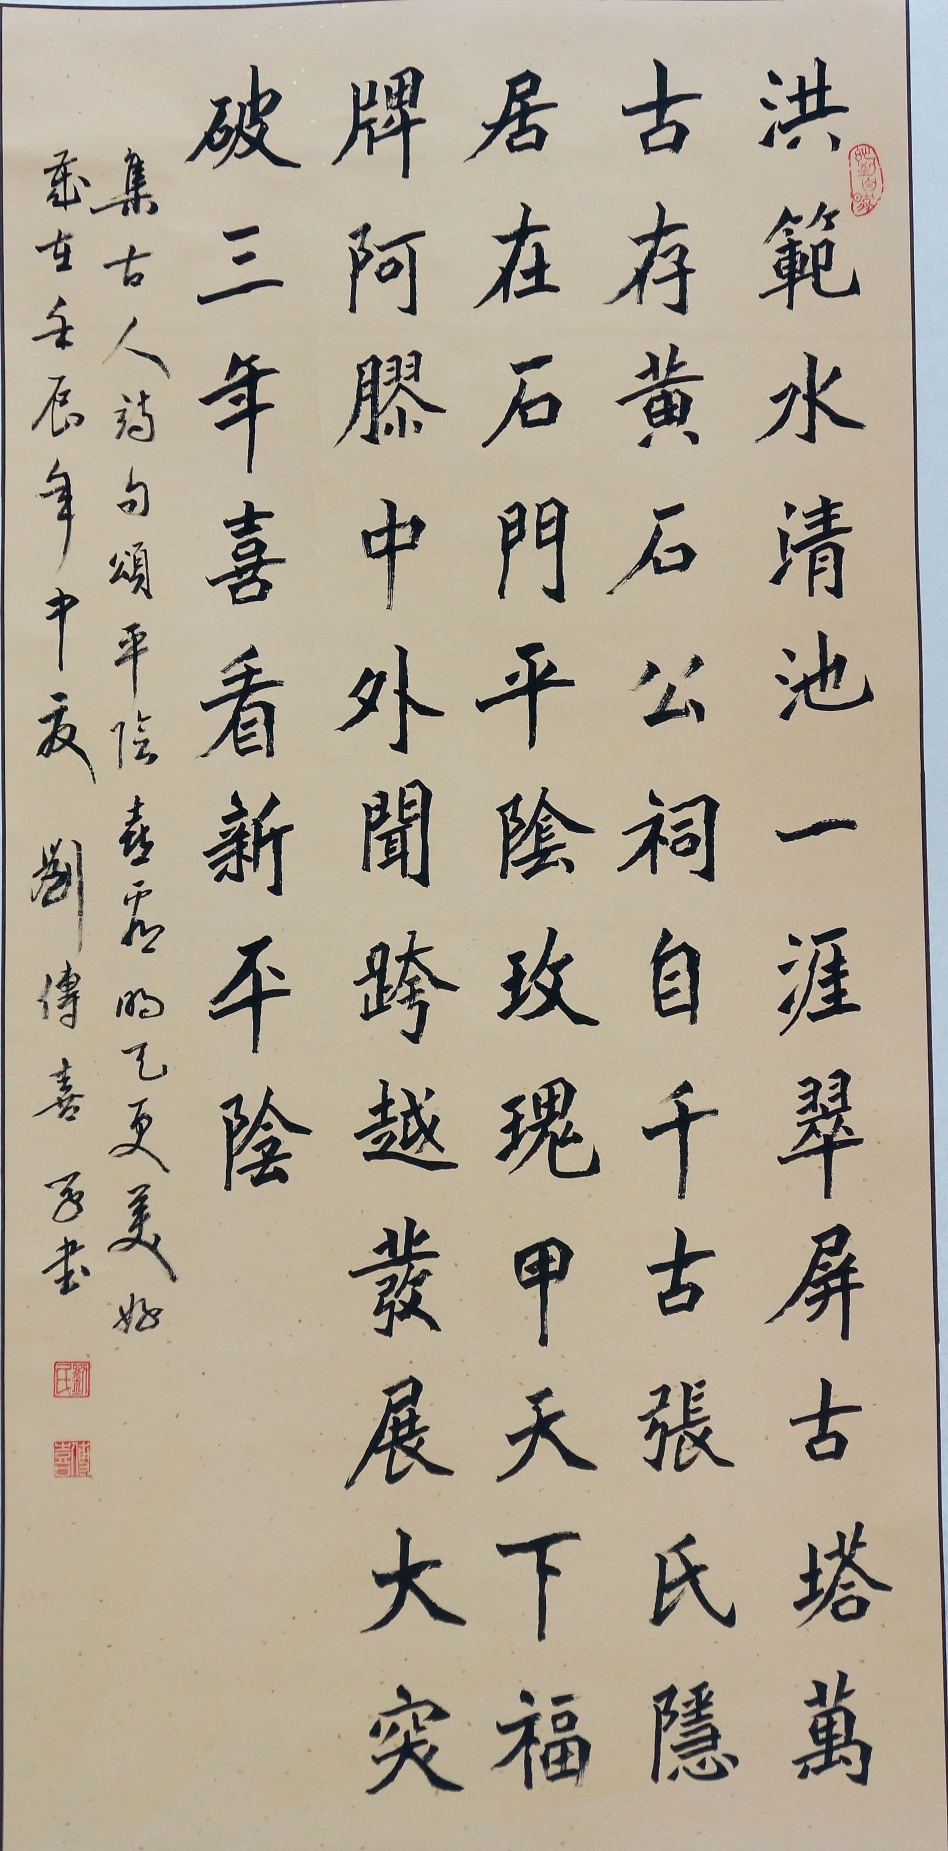 洪範水清池一涯翠屏古塔萬
古存黄石公祠自千古張氏隱
居在石門平陰玫瑰甲天下福
牌阿膠中外聞跨越發展大突
破三年喜看新平陰
集古人詩句頌平陰 明天更美好
歲在壬辰年中夏 劉傳喜 書
劉氏
傳喜